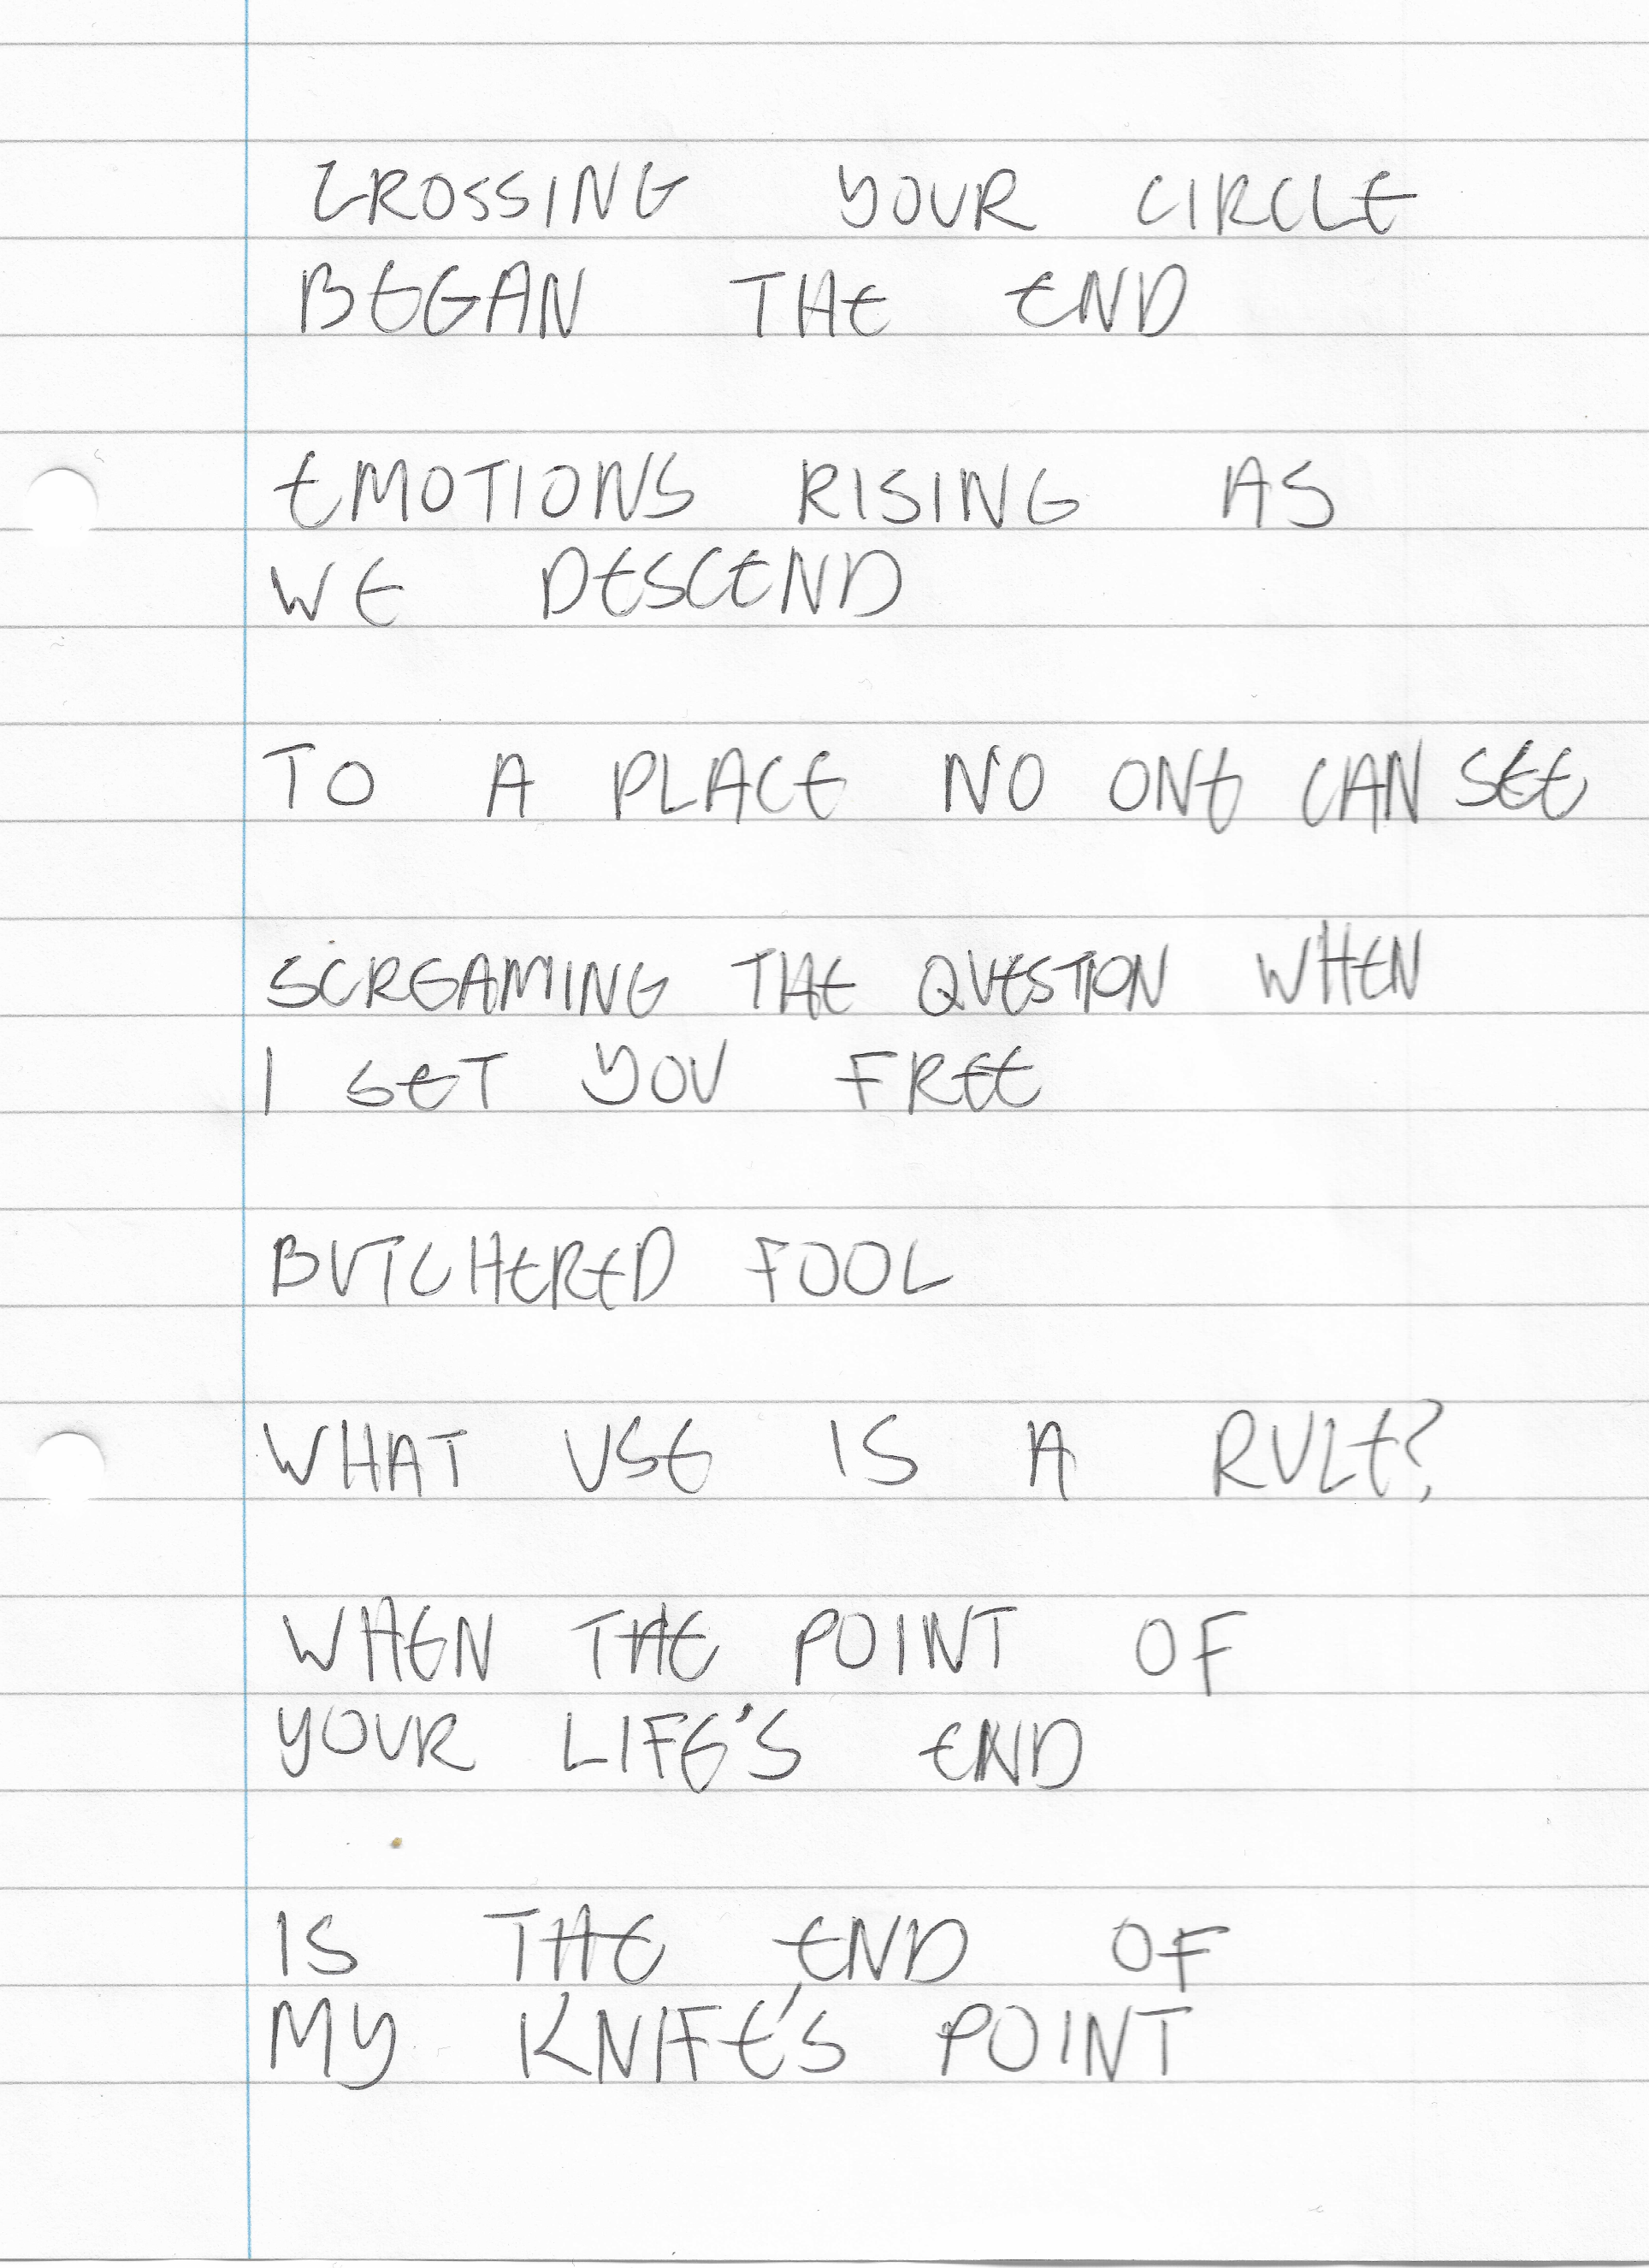 CROSSING YOUR CIRCLE
BEGAN THE END
EMOTIONS RISING AS
WE DESCEND
TO A PLACE NO ONE CAN SEE
SCREAMING THE QUESTION WHEN
I SET YOU FREE
BUTCHERED FOOL
WHAT USE IS A RULE?
WHEN THE POINT OF
YOUR LIFE'S END
IS THE END OF
MY KNIFE'S POINT